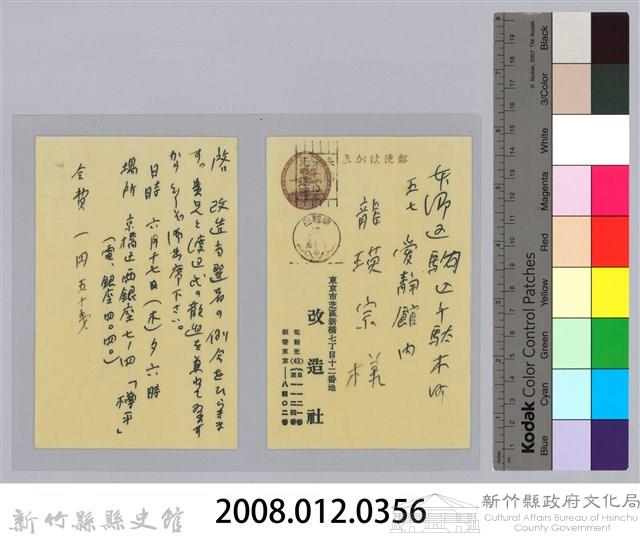 啓 改造当選者の例会をひらきま
す。貴兄と渡辺氏の歓迎を兼ねてゐます
から どうぞ御出席下さい。
日時 六月十七日(木)夕六時
場所 京橋区西銀座七ノ四「樽平」
(電、銀座四〇四〇)
会費 一円五十銭
郵便はがき
本郷区駒込千駄木町
五七 愛静館内
龍瑛宗様
東京市芝區新橋七丁目十二番地
改造社
電話芝(43)
振替東京一八四〇二番
Kodak Color Control Patches
© Kodak, 2007 TM: Kodak
Blue
Cyan
Green
Yellow
Red
Magenta
White
3/Color
Black
新竹縣縣史館
2008.012.0356
新竹縣政府文化局
Cultural Affairs Bureau of Hsinchu
County Government